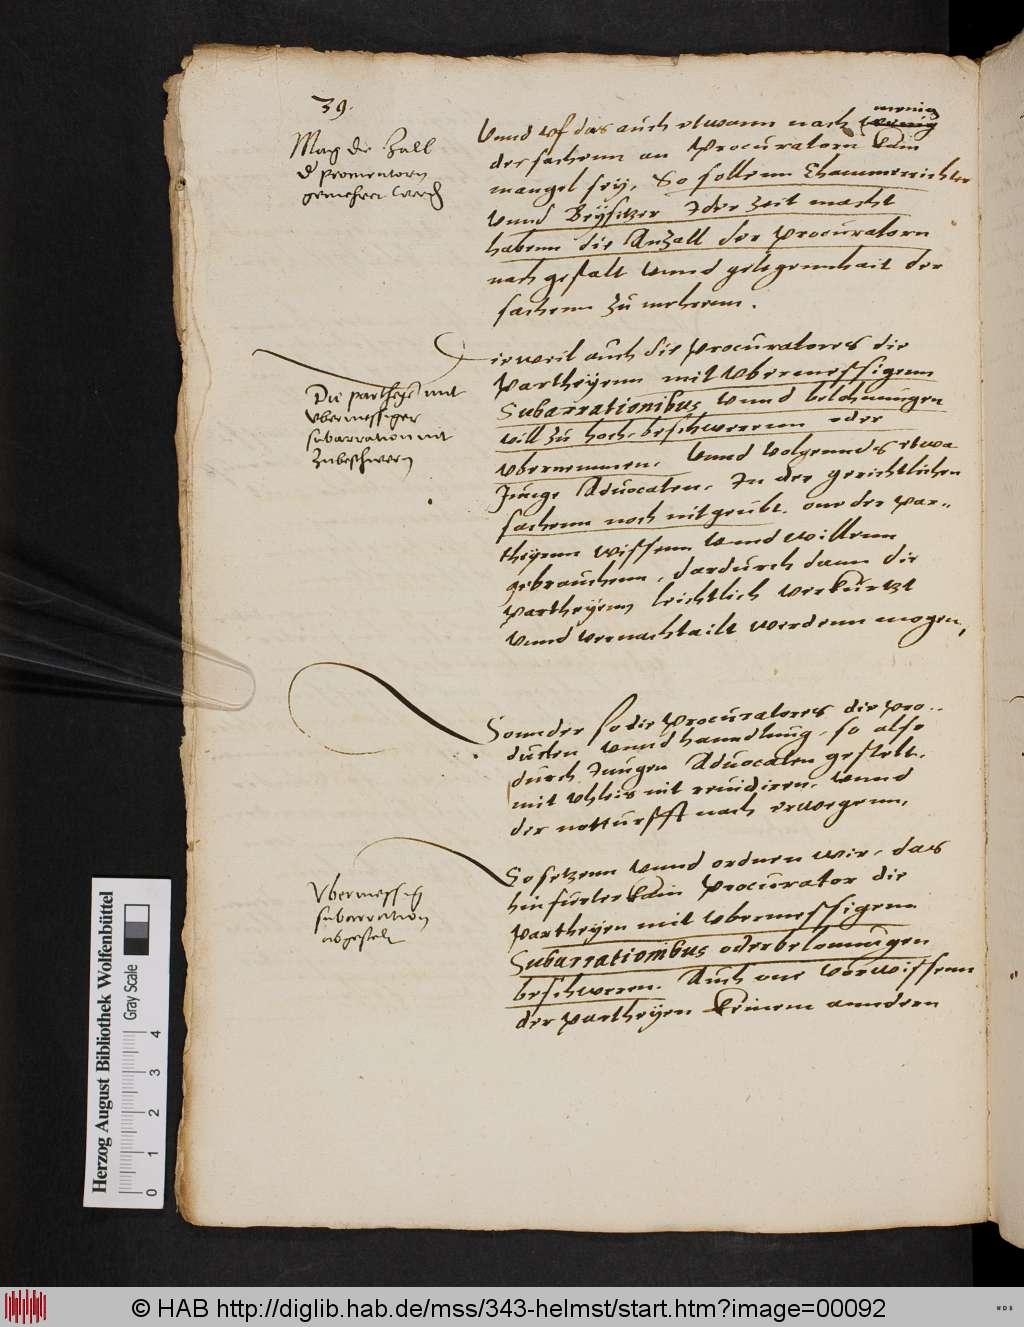 39.
Mag die Zall
d procuratorn
gemehret werd
Vnnd vf das auch etwann nach menig
der sachenn an Procuratorn kain
mangel sey, So sollenn Chammerrichter
vnnd Beysitzer Jder zeit macht
habenn die Anzall der Procuratorn
nach gestalt vnnd gelegennhait der
sachenn zu mehrenn.
Die partheyen mit
vbermessiger
subarration nit
zubeschwern
Dieweil auch die Procuratores die
Partheyenn mit vbermessigenn
Subarrationibus vnnd belohnungen
vill zu hoch beschwerenn oder
vbernemmen. Vnnd volgennds etwa
Junge Aduocaten, In der gerichtlichen
sachenn noch nit geubt. one der Par-
theyenn wissenn vnnd willenn
gebrauchenn, dardurch dann die
Partheyenn leichtlich verkurtzt
vnnd vernachtailt werdenn mogen,
Sonnder so die Procuratores die pro-
ducten vnnd hanndlung, so also
durch Jungen Aduocaten gestelt,
mit vhleis nit reuidiren, vnnd
der notturfft nach erwegenn,
Vbermessig
subarration
abgestelt
So setzenn vnnd ordnen wir, das
hinfurter kain Procurator die
Partheyen mit vbermessigenn
Subarrationibus oder belonnungen
beschweren. Auch one vorwissenn
der Partheyen keinem anndern
Herzog August Bibliothek Wolfenbüttel
Gray Scale
0 1 2 3 4
© HAB http://diglib.hab.de/mss/343-helmst/start.htm?image=00092
WDB